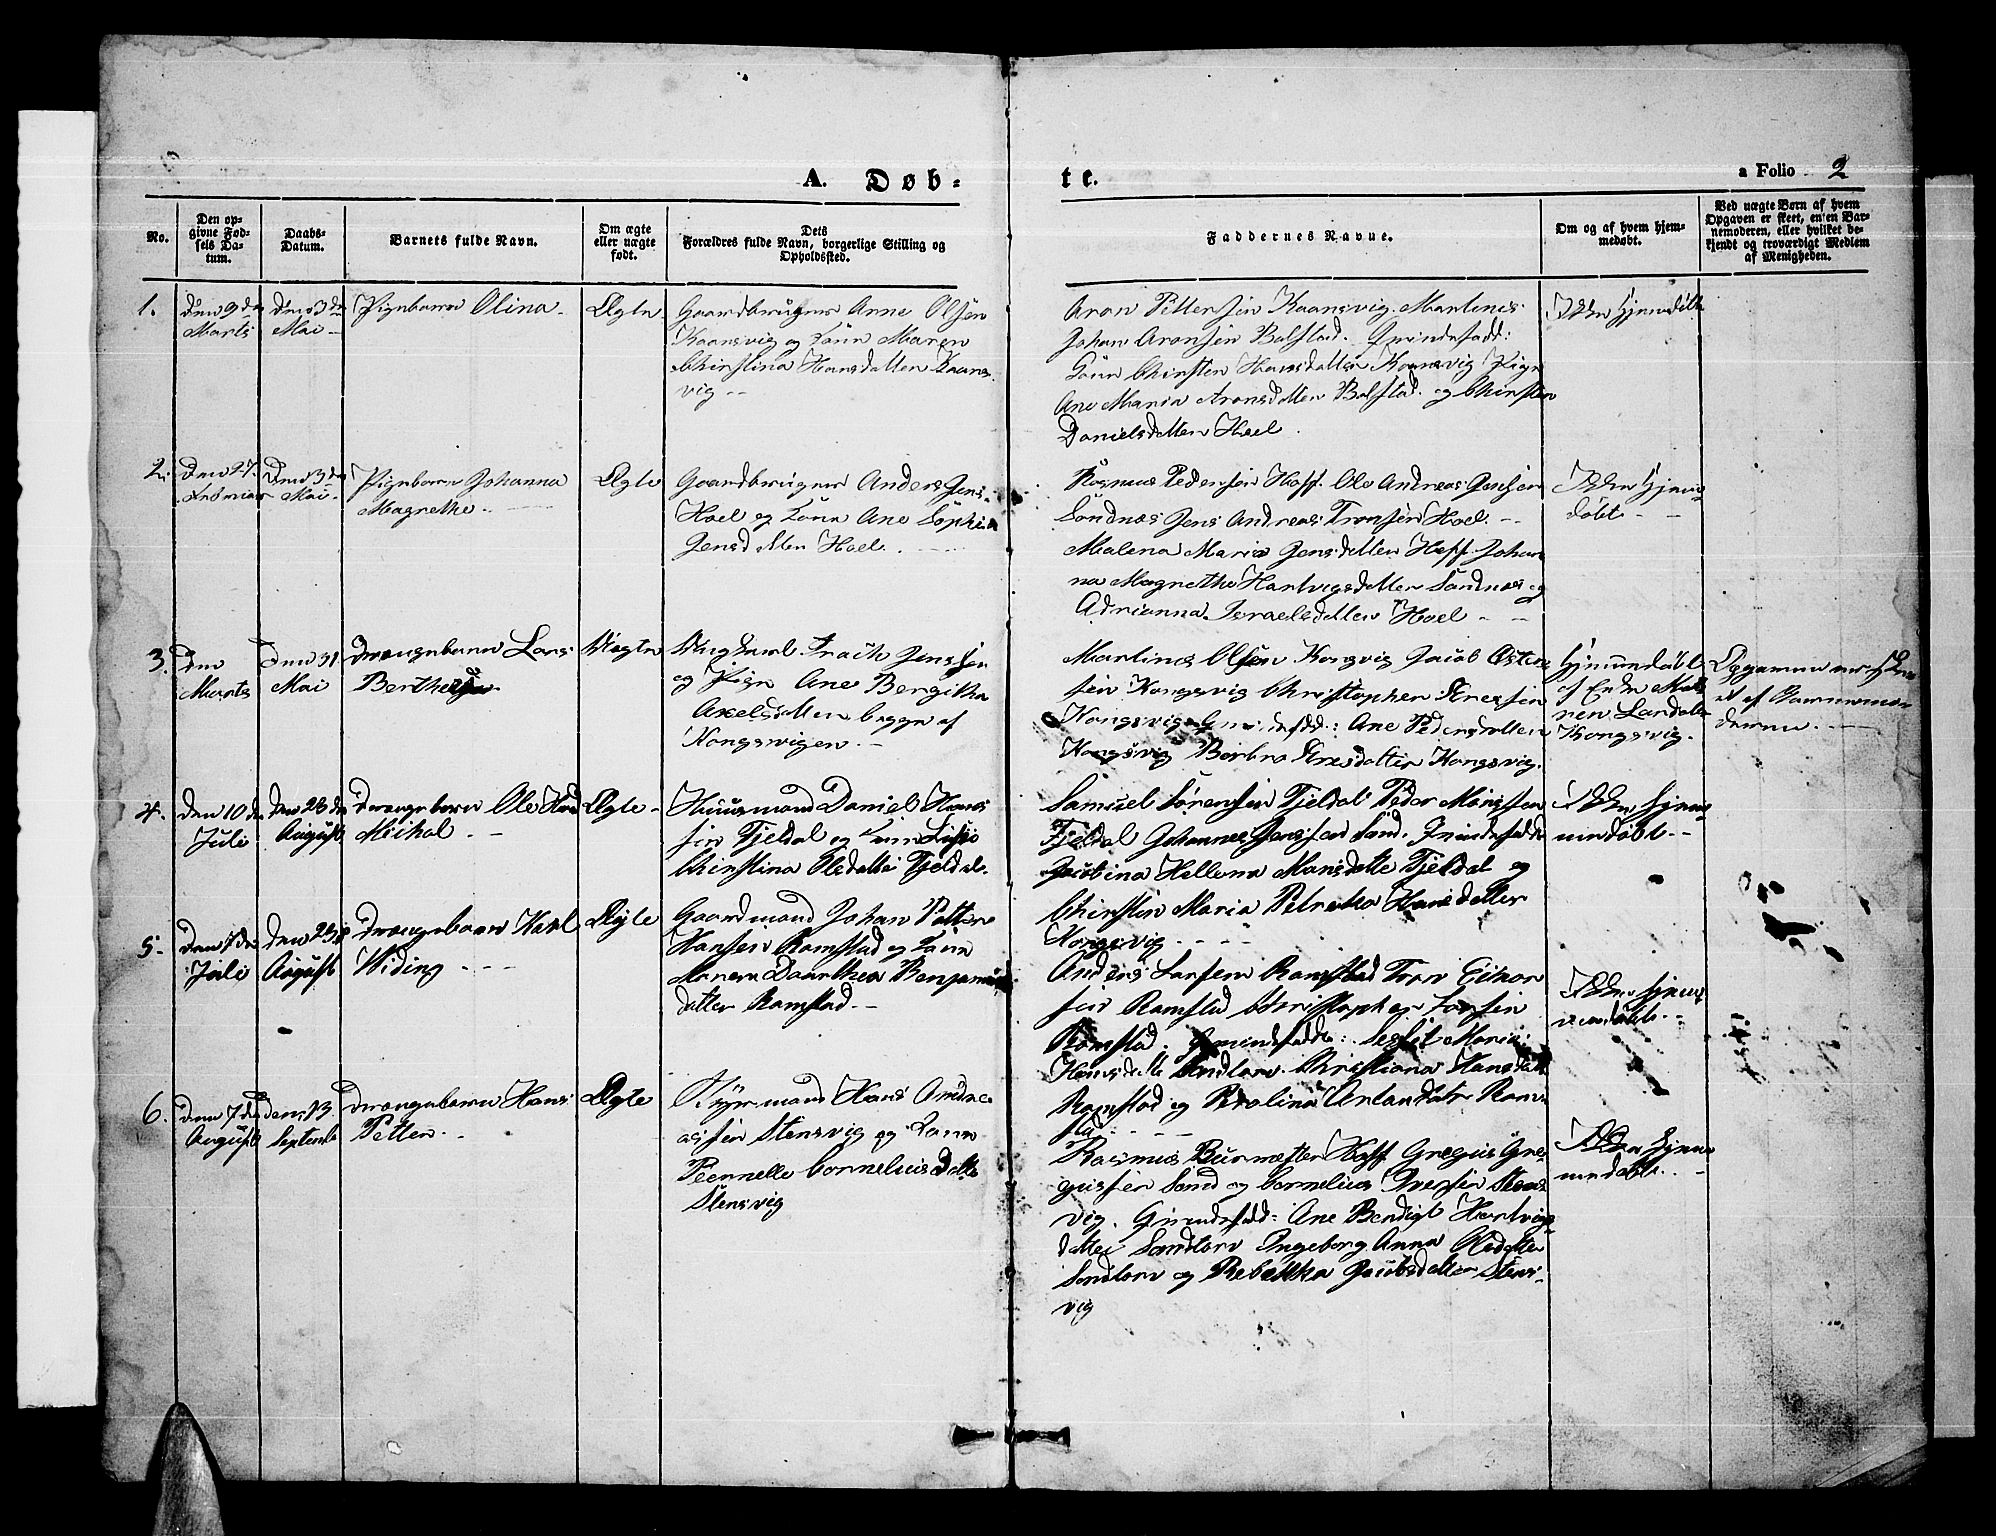 A. Døb-
te.
a Folio 2
No.
Den op-
givne Fød-
sels Da-
tum.
Daabs-
Datum.
Barnets fulde Navn.
Om ægte
eller uægte
født.
Dets
Forældres fulde Navn, borgerlige Stilling og
Opholdssted.
Faddernes Navne.
Om og af hvem hjem-
medøbt.
Ved uægte Børn af hvem
Opgaven er skeet, enten Bar-
nemoderen, eller hvilket be-
kjendt og troværdigt Medlem
af Menigheden.
1.
den 9de
Marts
den 3die
Mai
Pigebarn Olina
Ægte
Gaardbruger Arne Olsen
Kaansvig og Kone Maren
Christina Hansdatter Kaans-
vig
Aron Pettersen Kaansvig. Martinus
Johan Aronsen Balstad. Qvindefadd:
Kone Chirsten Hansdatter Kaansvig Pige
Ane Maria Aronsdatter Balstad. og Chirsten
Danielsdatter Hoel.
Ikke hjemdøbt
2.
den 27
Februar
den 3die
Mai
Pigebarn Johanna
Magrethe
Ægte
Gaardbruger Anders Jens.
Hoel og Kone Ane Sophia
Jensdatter Hoel
Rasmus Pedersen Hoff Ole Andreas Jensen
Sandnæs Jens Andreas Tronsen Hoel.
Malena Maria Jensdatter Hoff Johan-
na Magrethe Hartvigsdatter Sandnæs og
Adrianna Israelsdatter Hoel
Ikke hjemme-
døbt
3.
den
Marts
den 31
Mai
Drængebarn Lars
Uægte
Ungkarl Jenssen
og Pige Ane Bergitha
Axelsdatter begge af
Kongsvigen.
Martinus Olsen Kongsvig Jacob
sen Kongsvig Christopher
Kongsvig Qvindefadd: Ane Pedersdatter
Kongsvig Barbra Kongsvig.
Hjemmedøbt
af
Kongsvig.
Opgaven er skee-
et af Barnemo-
deren.
4.
den 10de
Juli
den 23de
August
Drængebarn Ole
Michal.
Ægte
Huusmand Daniel Hans
sen Tjeldal og Kone
Christina Olsdatter Tjeldal.
Samuel Sørensen Tjeldal Peder Monssen
Tjeldal Johannes Jenssen Sand. Qvindefadd:
Jacobina Hellena Monsdatte Tjeldal og
Chirsten Maria Petrika Hansdatter
Kongsvig.
Ikke hjem-
mendøbt.
5.
den 7de
Juli
den 23de
August
Drængebarn Karl
Widing
Ægte
Gaardmand Johan Petter
Hansen Ramstad og Kone
Maren Daarthea Benjamins
datter Ramstad.
Anders Larsen Ramstad Tron Einar
sen Ramstad Christopher Larsen
Ramstad. Qvindefadd: Maria
Hansdatte Sandtorv. Christiana Hansdatt
Ramstad og Ram-
stad
Ikke hjem-
mendøbt.
6.
den 7de
August
den 13
Septembe
Drængebarn Hans
Petter.
Ægte
Hans Andre-
assen Stensvig og Kone
Pernelle Cornelius Datte
Stensvig
Rasmus Burmester Hoff Gregius Gre-
giussen Sand og Cornelius Iversen Stens-
vig. Qvindefadd: Ane Bendigt Hartvigs-
datter Sandtorv Ingeborg Anna Olsdatter
Sandtorv og Rebekka Jacobsdatter Stens-
vig
Ikke hjem-
mendøbt.